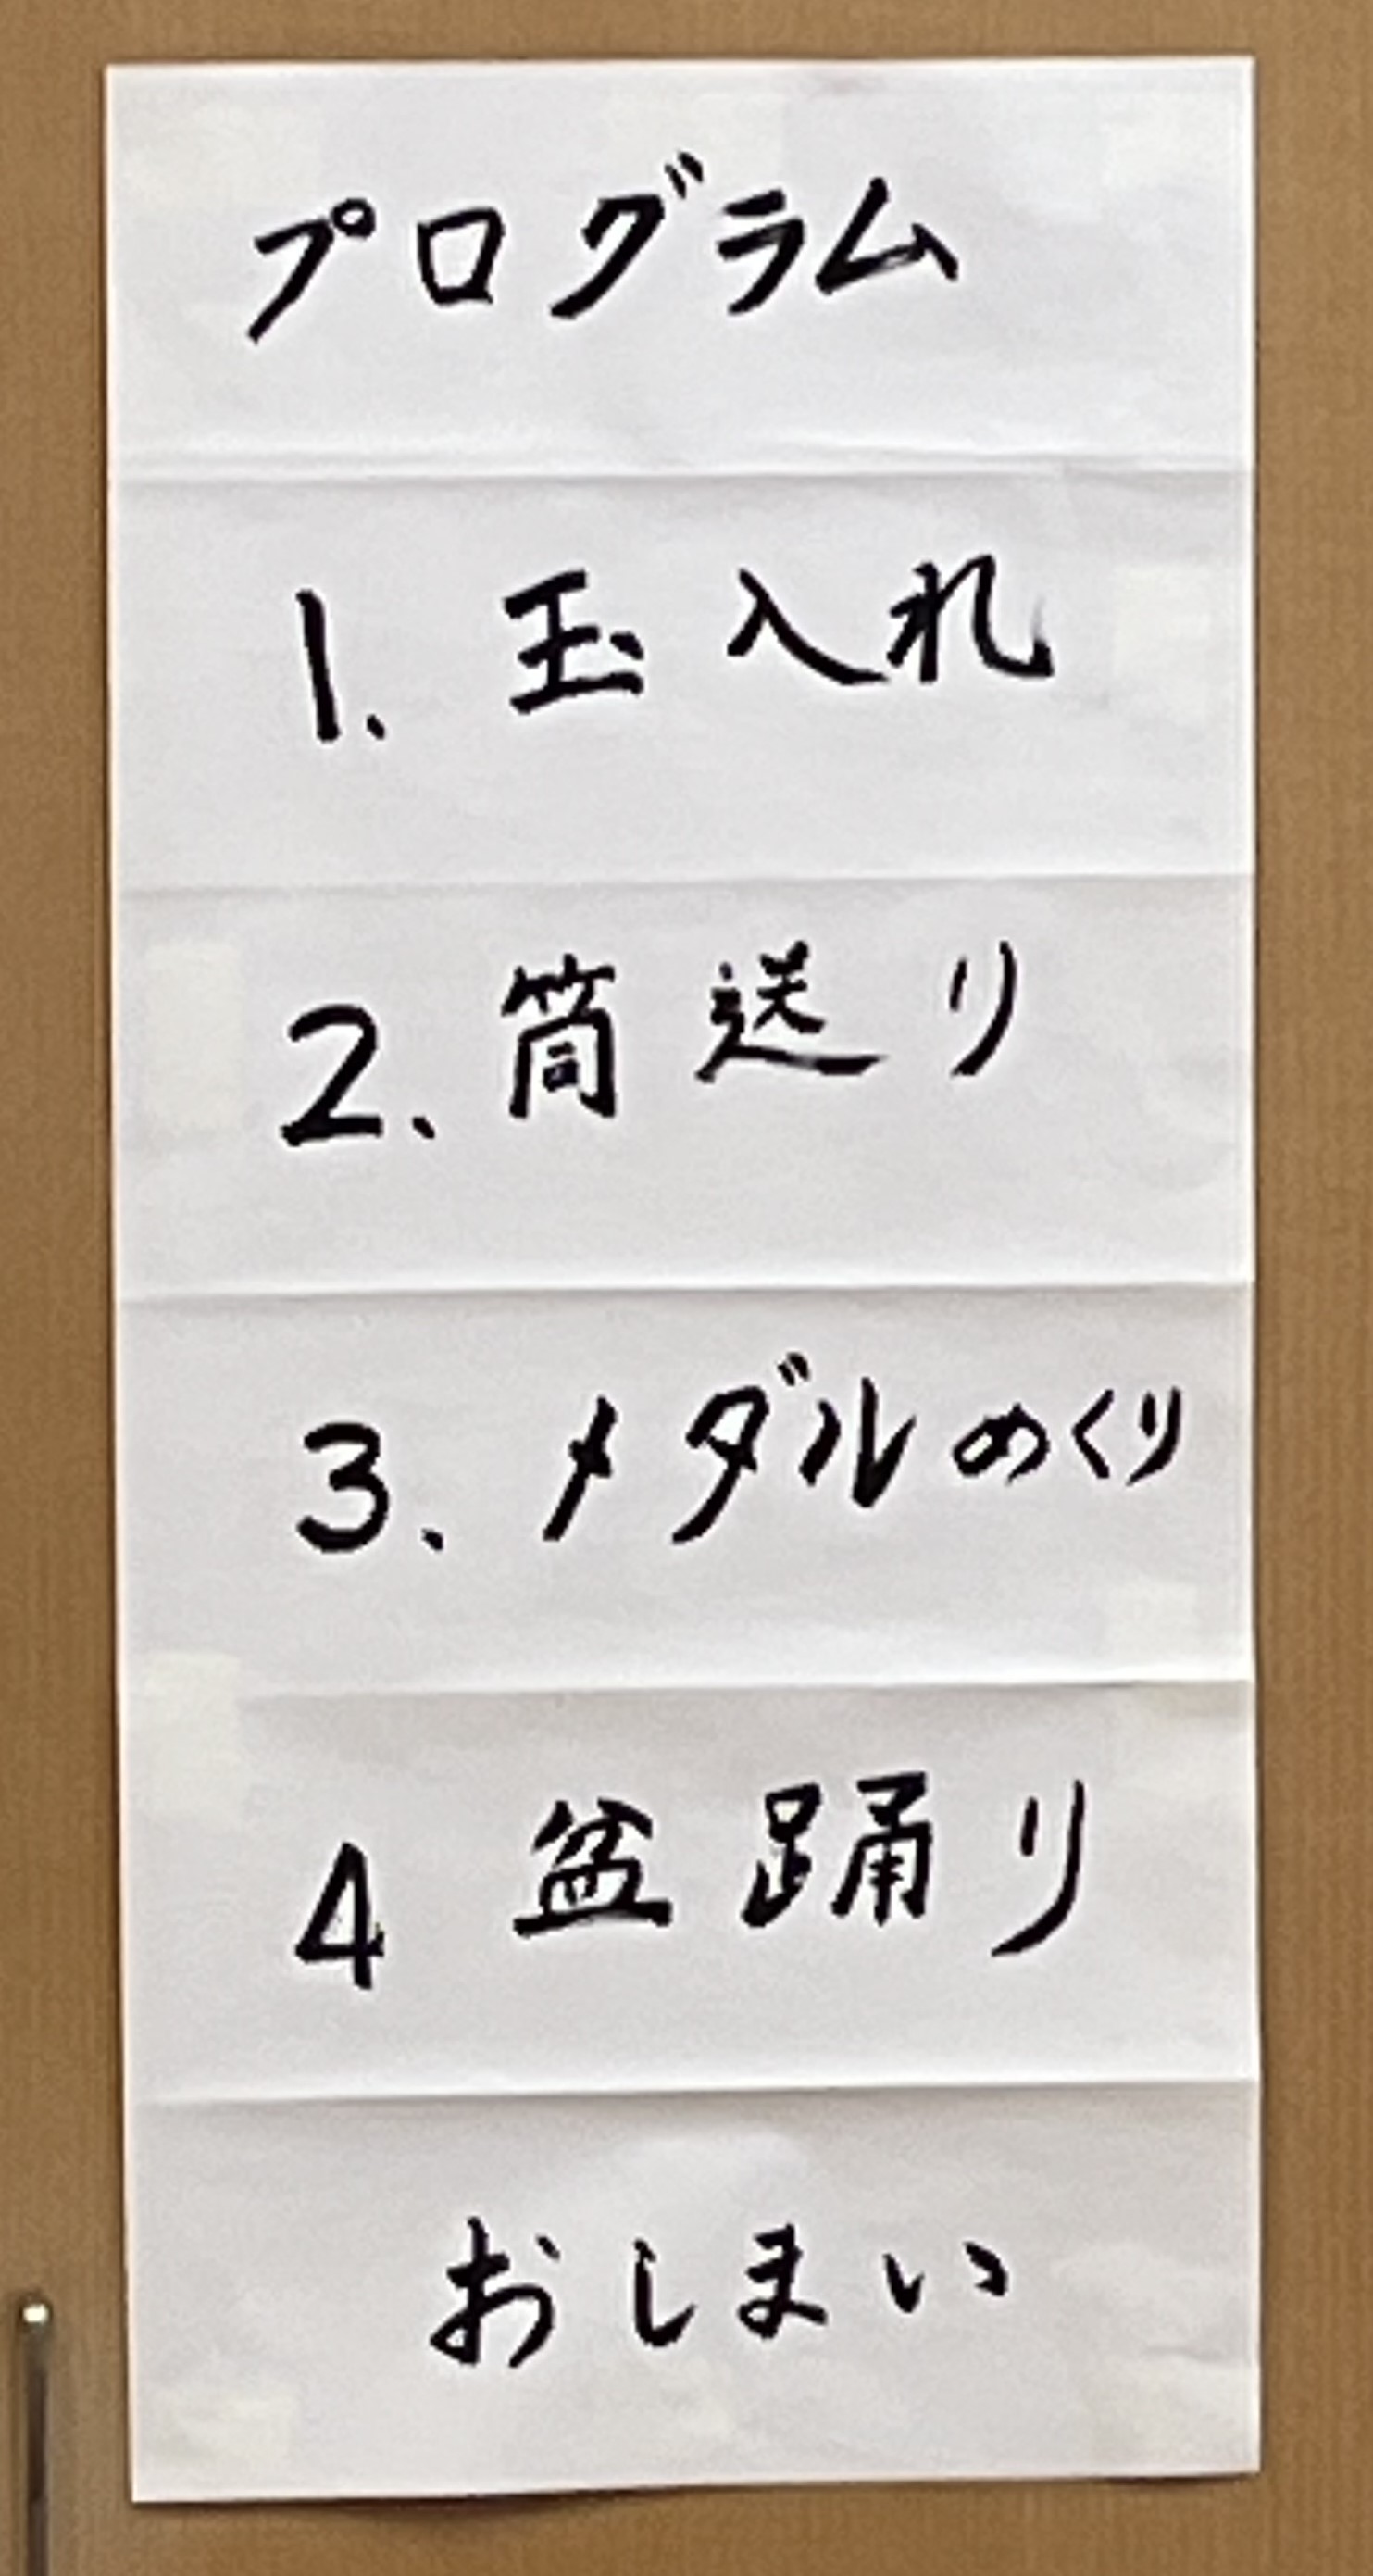 プログラム
1. 玉入れ
2. 筒送り
3. メダルめくり
4 盆踊り
おしまい